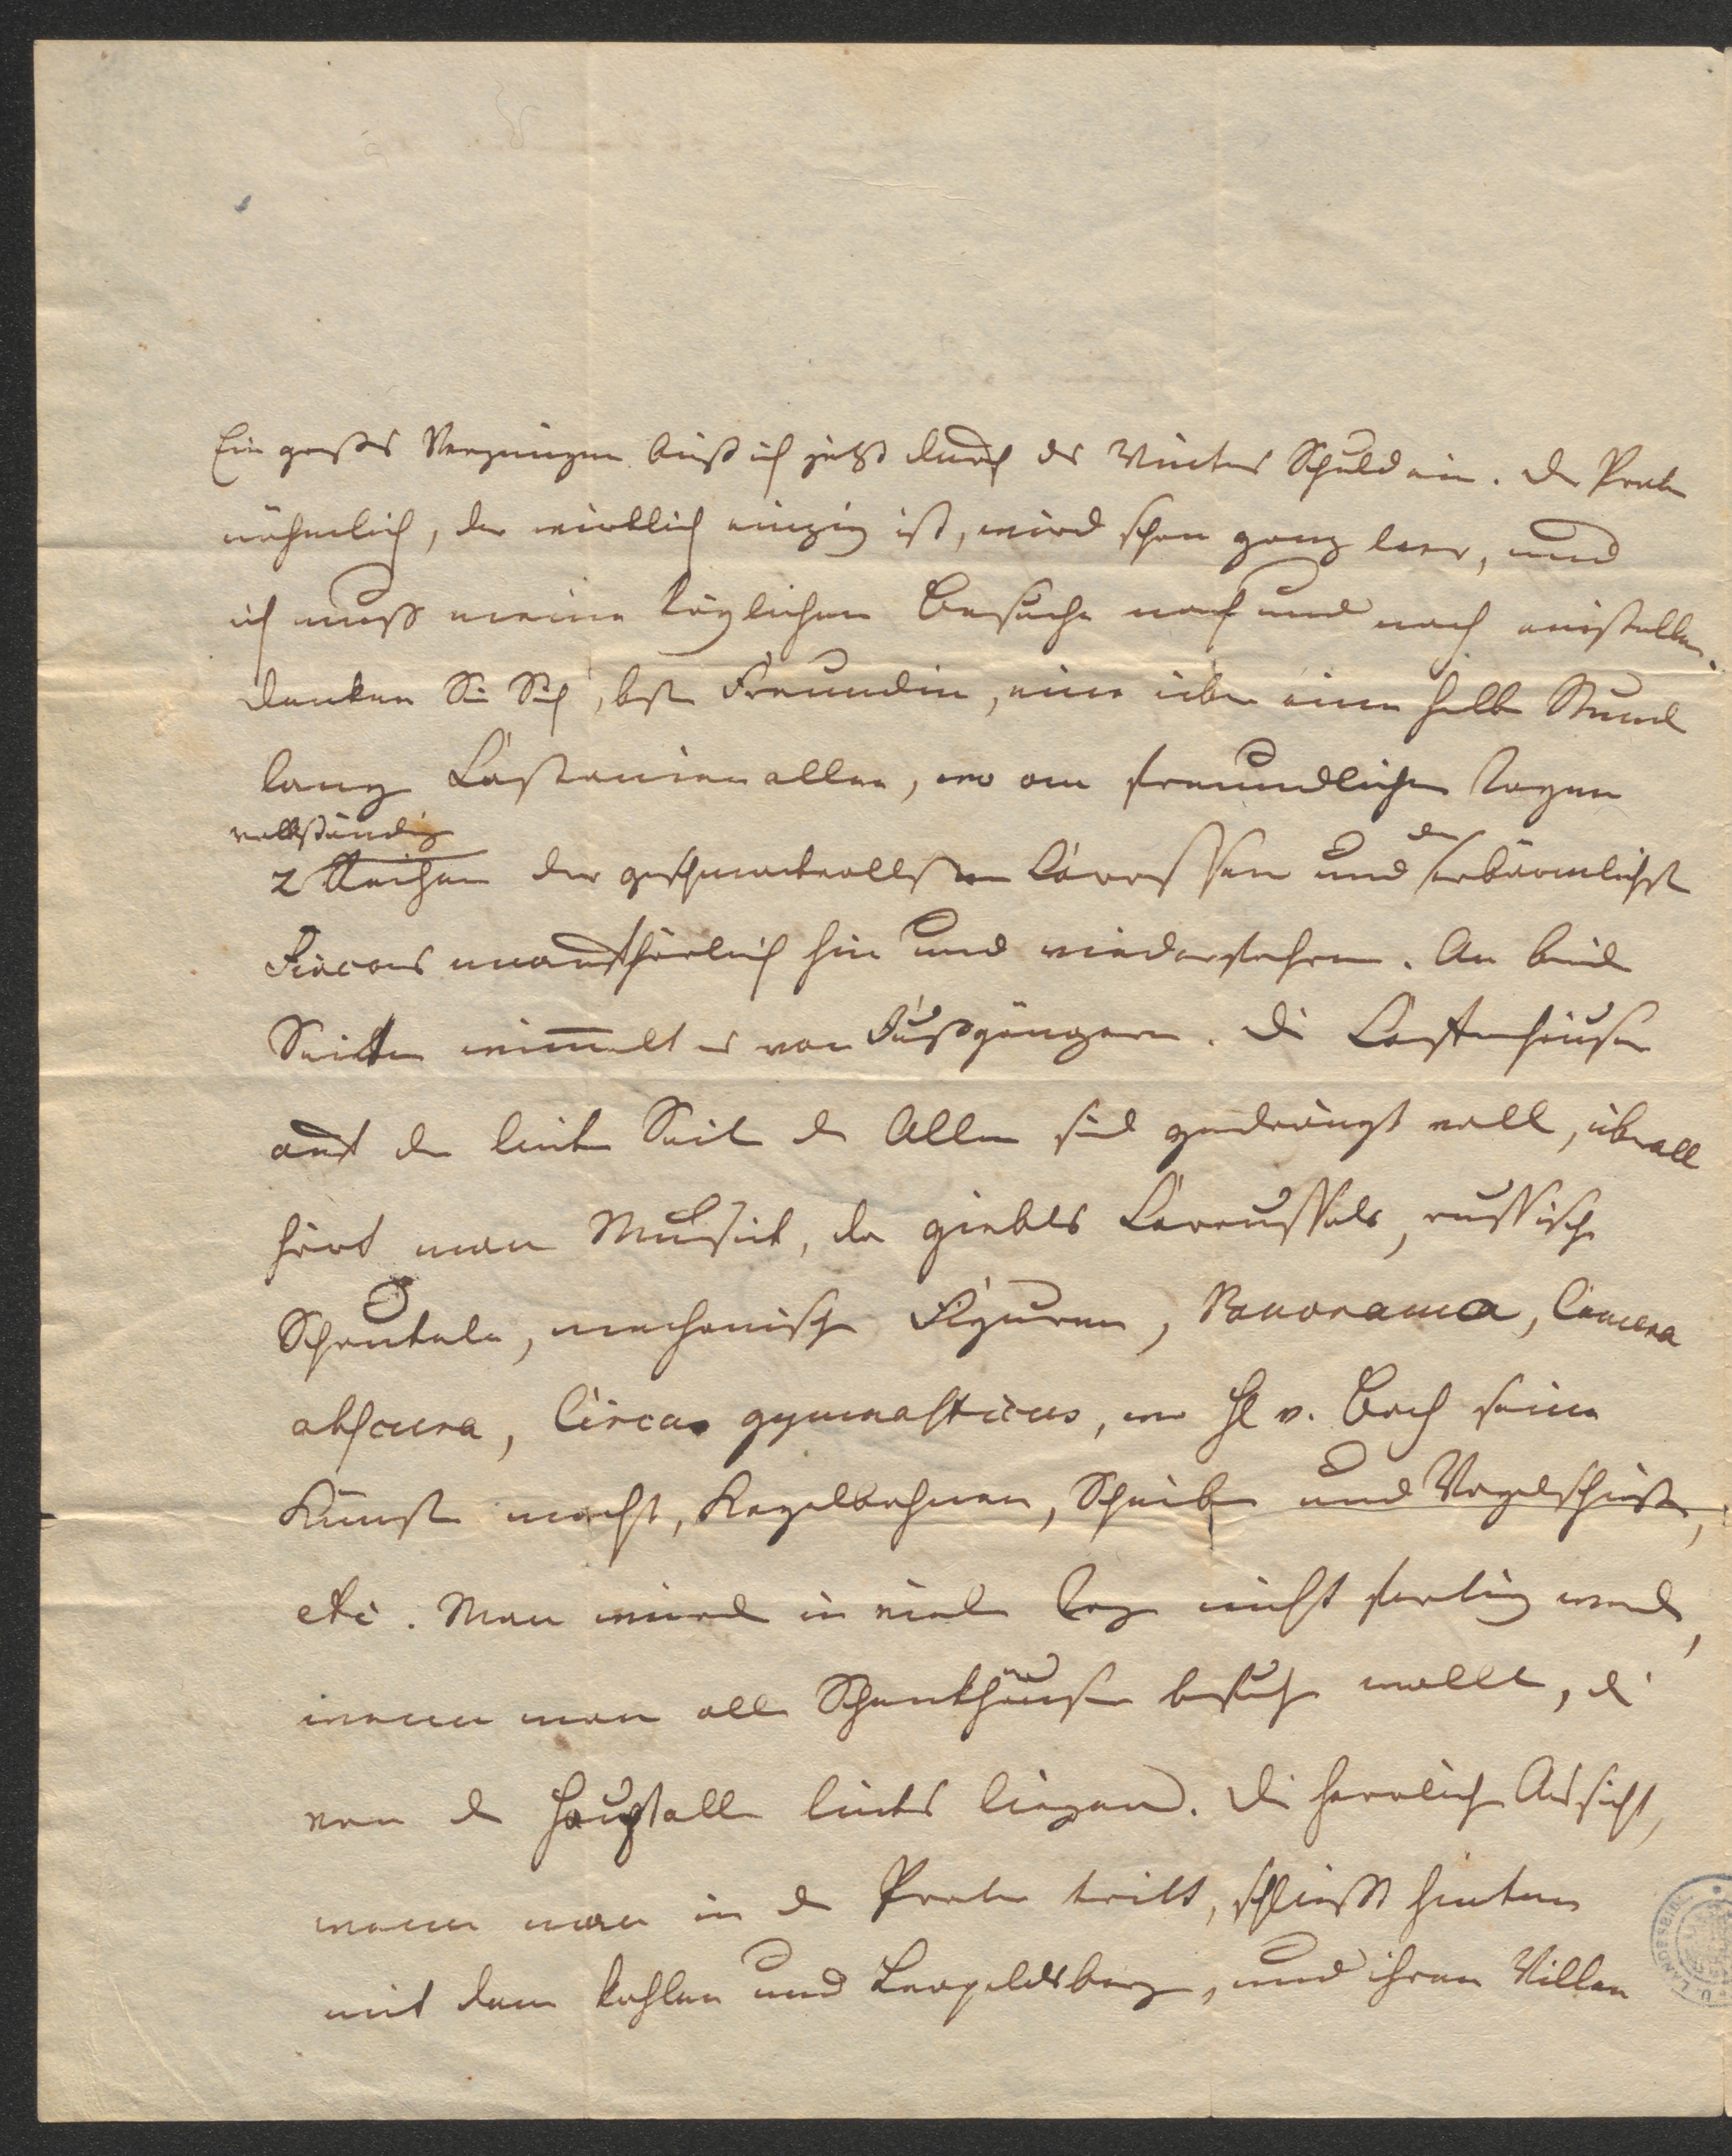 Ein großes Vergnügen büß ich jetzt durch des Winters Schuld ein. Der Prater
nähmlich, der wirklich einzig ist, wird schon ganz leer, und
ich muß meine täglichen Besuche nach und nach einstellen.
Denken Sie Sich, beste Freundin, eine über eine halbe Stunde
lange Kastanienallee, wo an freundlichen Tagen
vollständig
2 Reihen der geschmackvollsten Carossen und der erbärmlichsten
Fiacres unaufhörlich hin und wiederfahren. An beiden
Seiten wimelt es von Fußgängern. Die Kaffeehäuser
auf der linken Seite der Allee sind gedrängt voll, überall
hört man Musick, da giebts Caroussels, russische
Schaukeln, mechanische Figuren, Panorama, Camera
obscura, Circus gymnasticus, wo H. v. Bach seine
Künste macht, Kegelbahnen, Scheiben und Vogelschießen,
etc. Man würde in vielen Tagen nicht fertig werden,
wenn man alle Schenkhäuser besuchen wollte, die
von der Hauptallee links liegen. Die herrliche Aussicht,
wenn man in den Prater tritt, schließt hinten
mit dem Kahlen und Leopoldsberg, und ihren Villen
LANDESBIBL